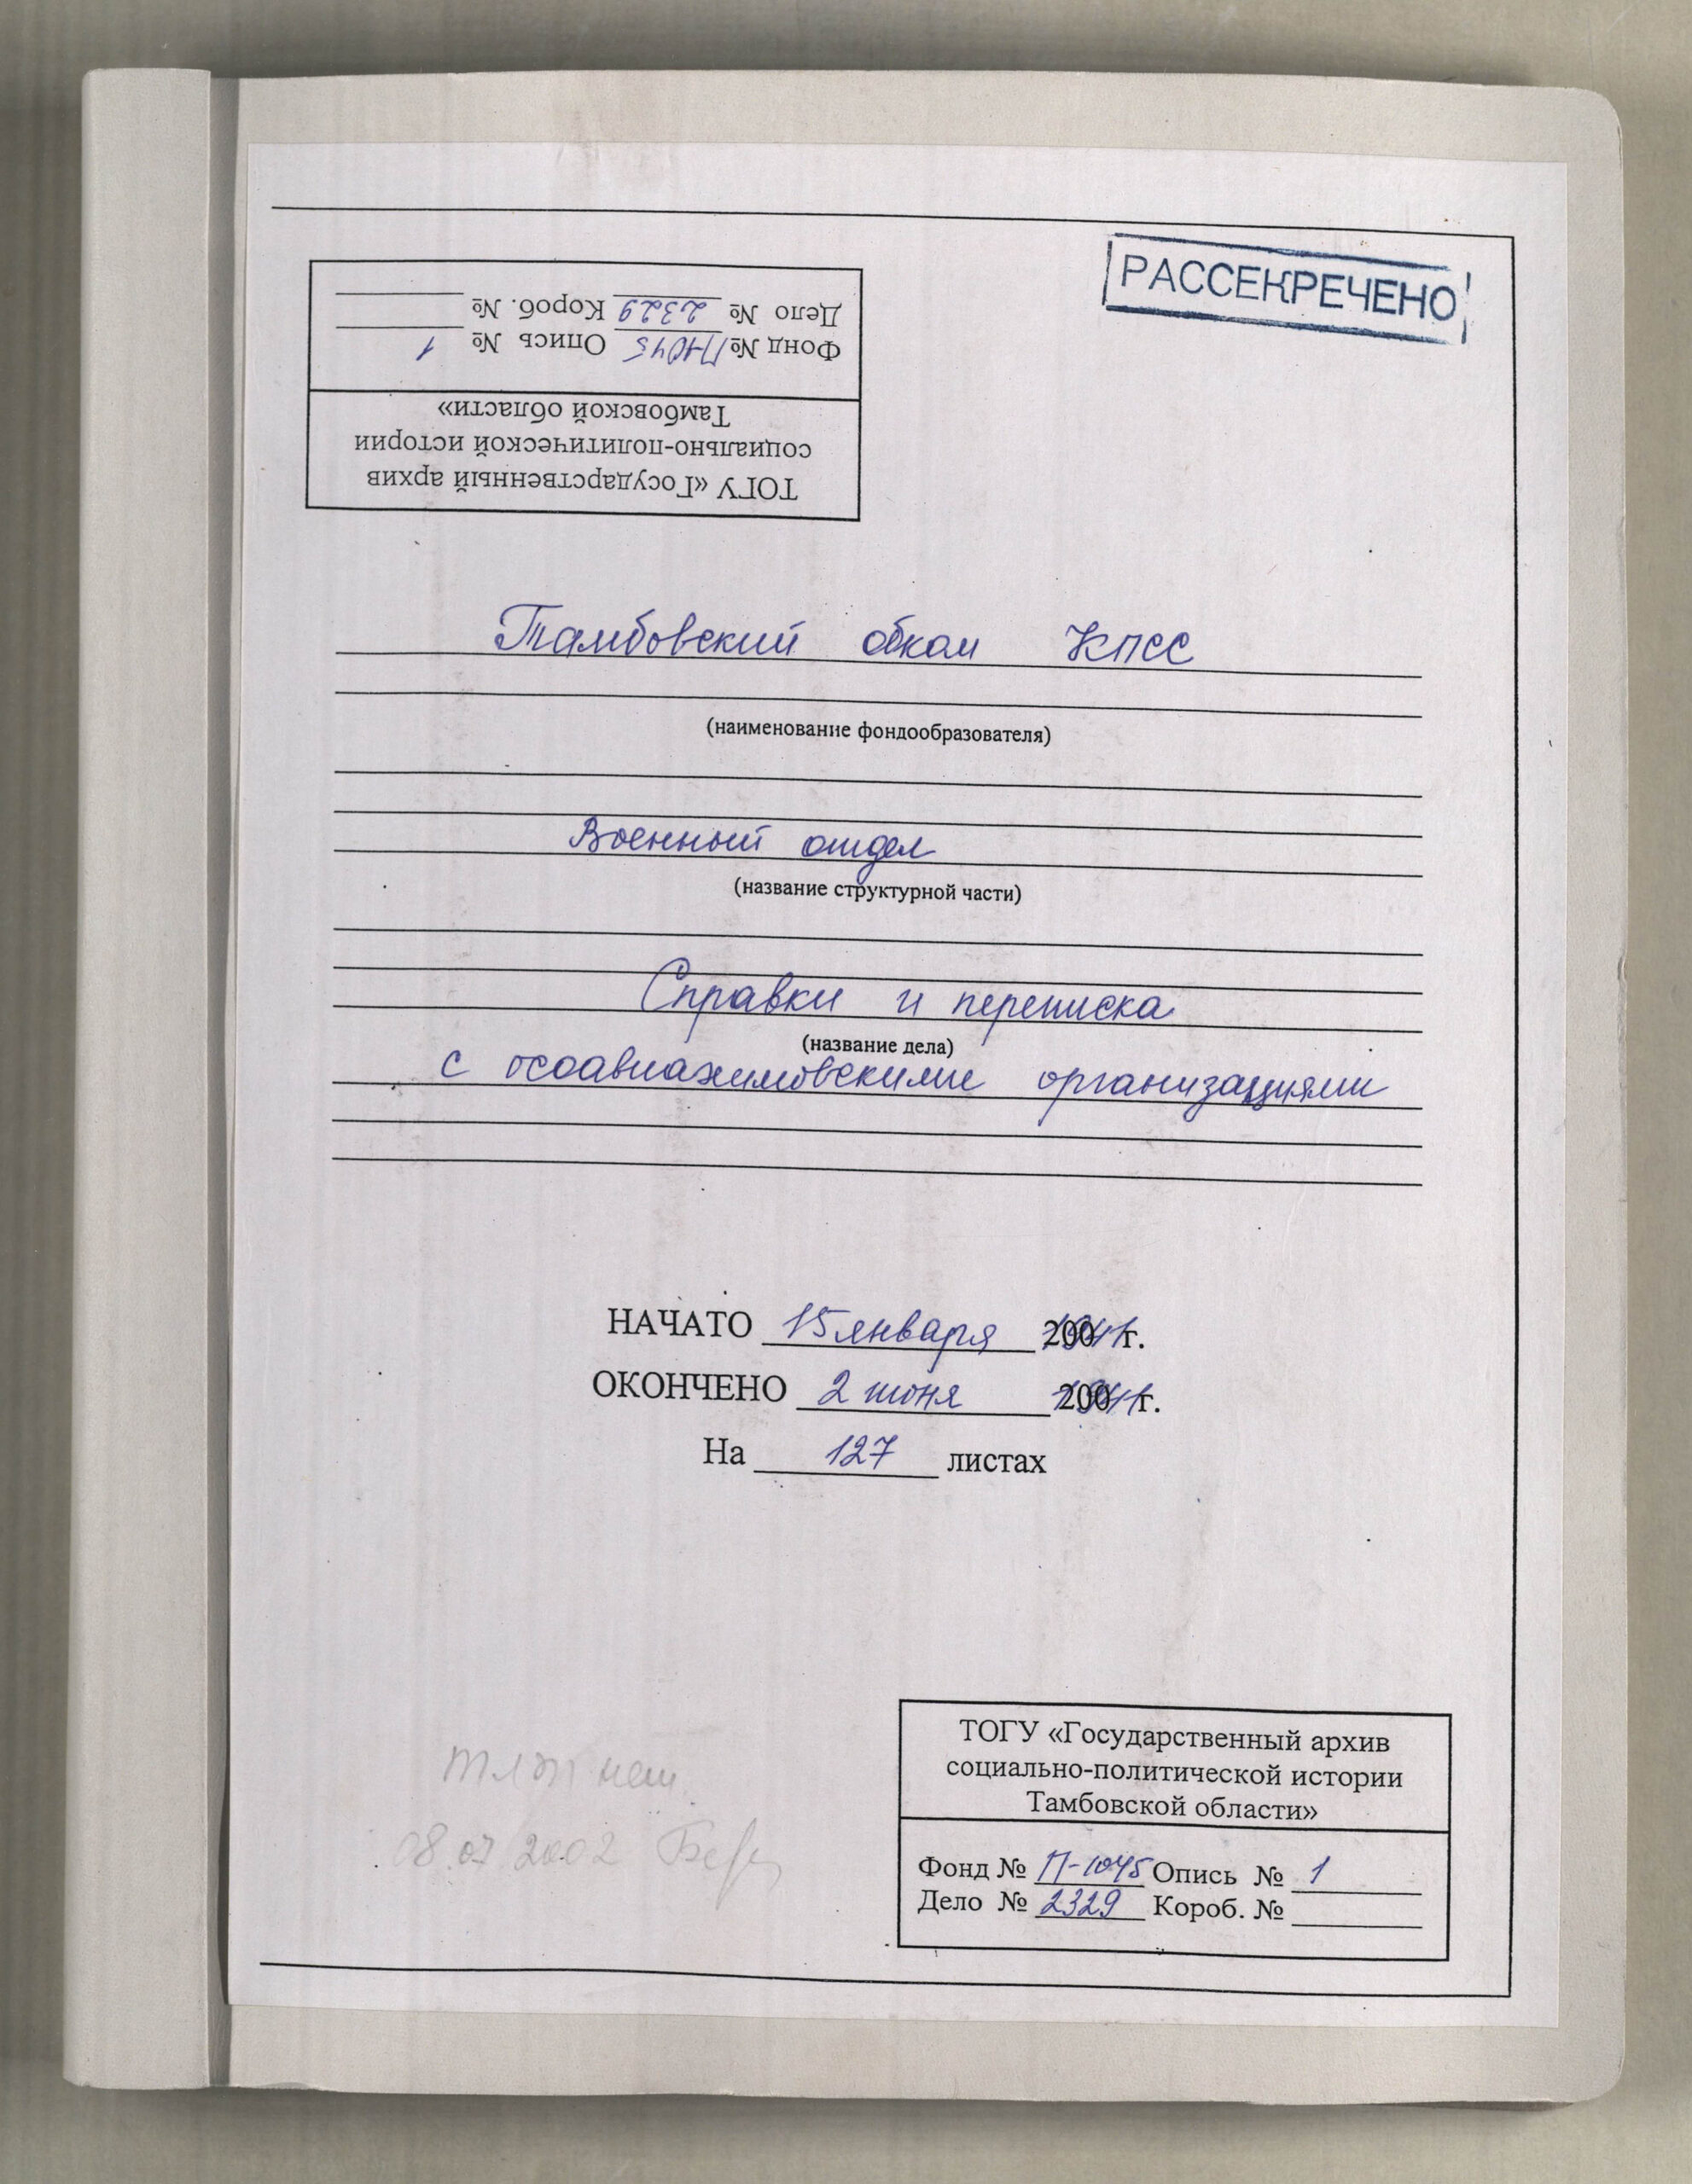 РАССЕКРЕЧЕНО
ТОГУ «Государственный архив
социально-политической истории
Тамбовской области»
Фонд № П-1045 Опись № 1
Дело № 2329 Короб. №
Тамбовский обком КПСС
(наименование фондообразователя)
Военный отдел
(название структурной части)
Справки и переписка
(название дела)
с осоавиахимовскими организациями
НАЧАТО 15 января 1941 г.
ОКОНЧЕНО 2 июня 1941 г.
На 127 листах
нет
08.07 2002
ТОГУ «Государственный архив
социально-политической истории
Тамбовской области»
Фонд № П-1045 Опись № 1
Дело № 2329 Короб. №